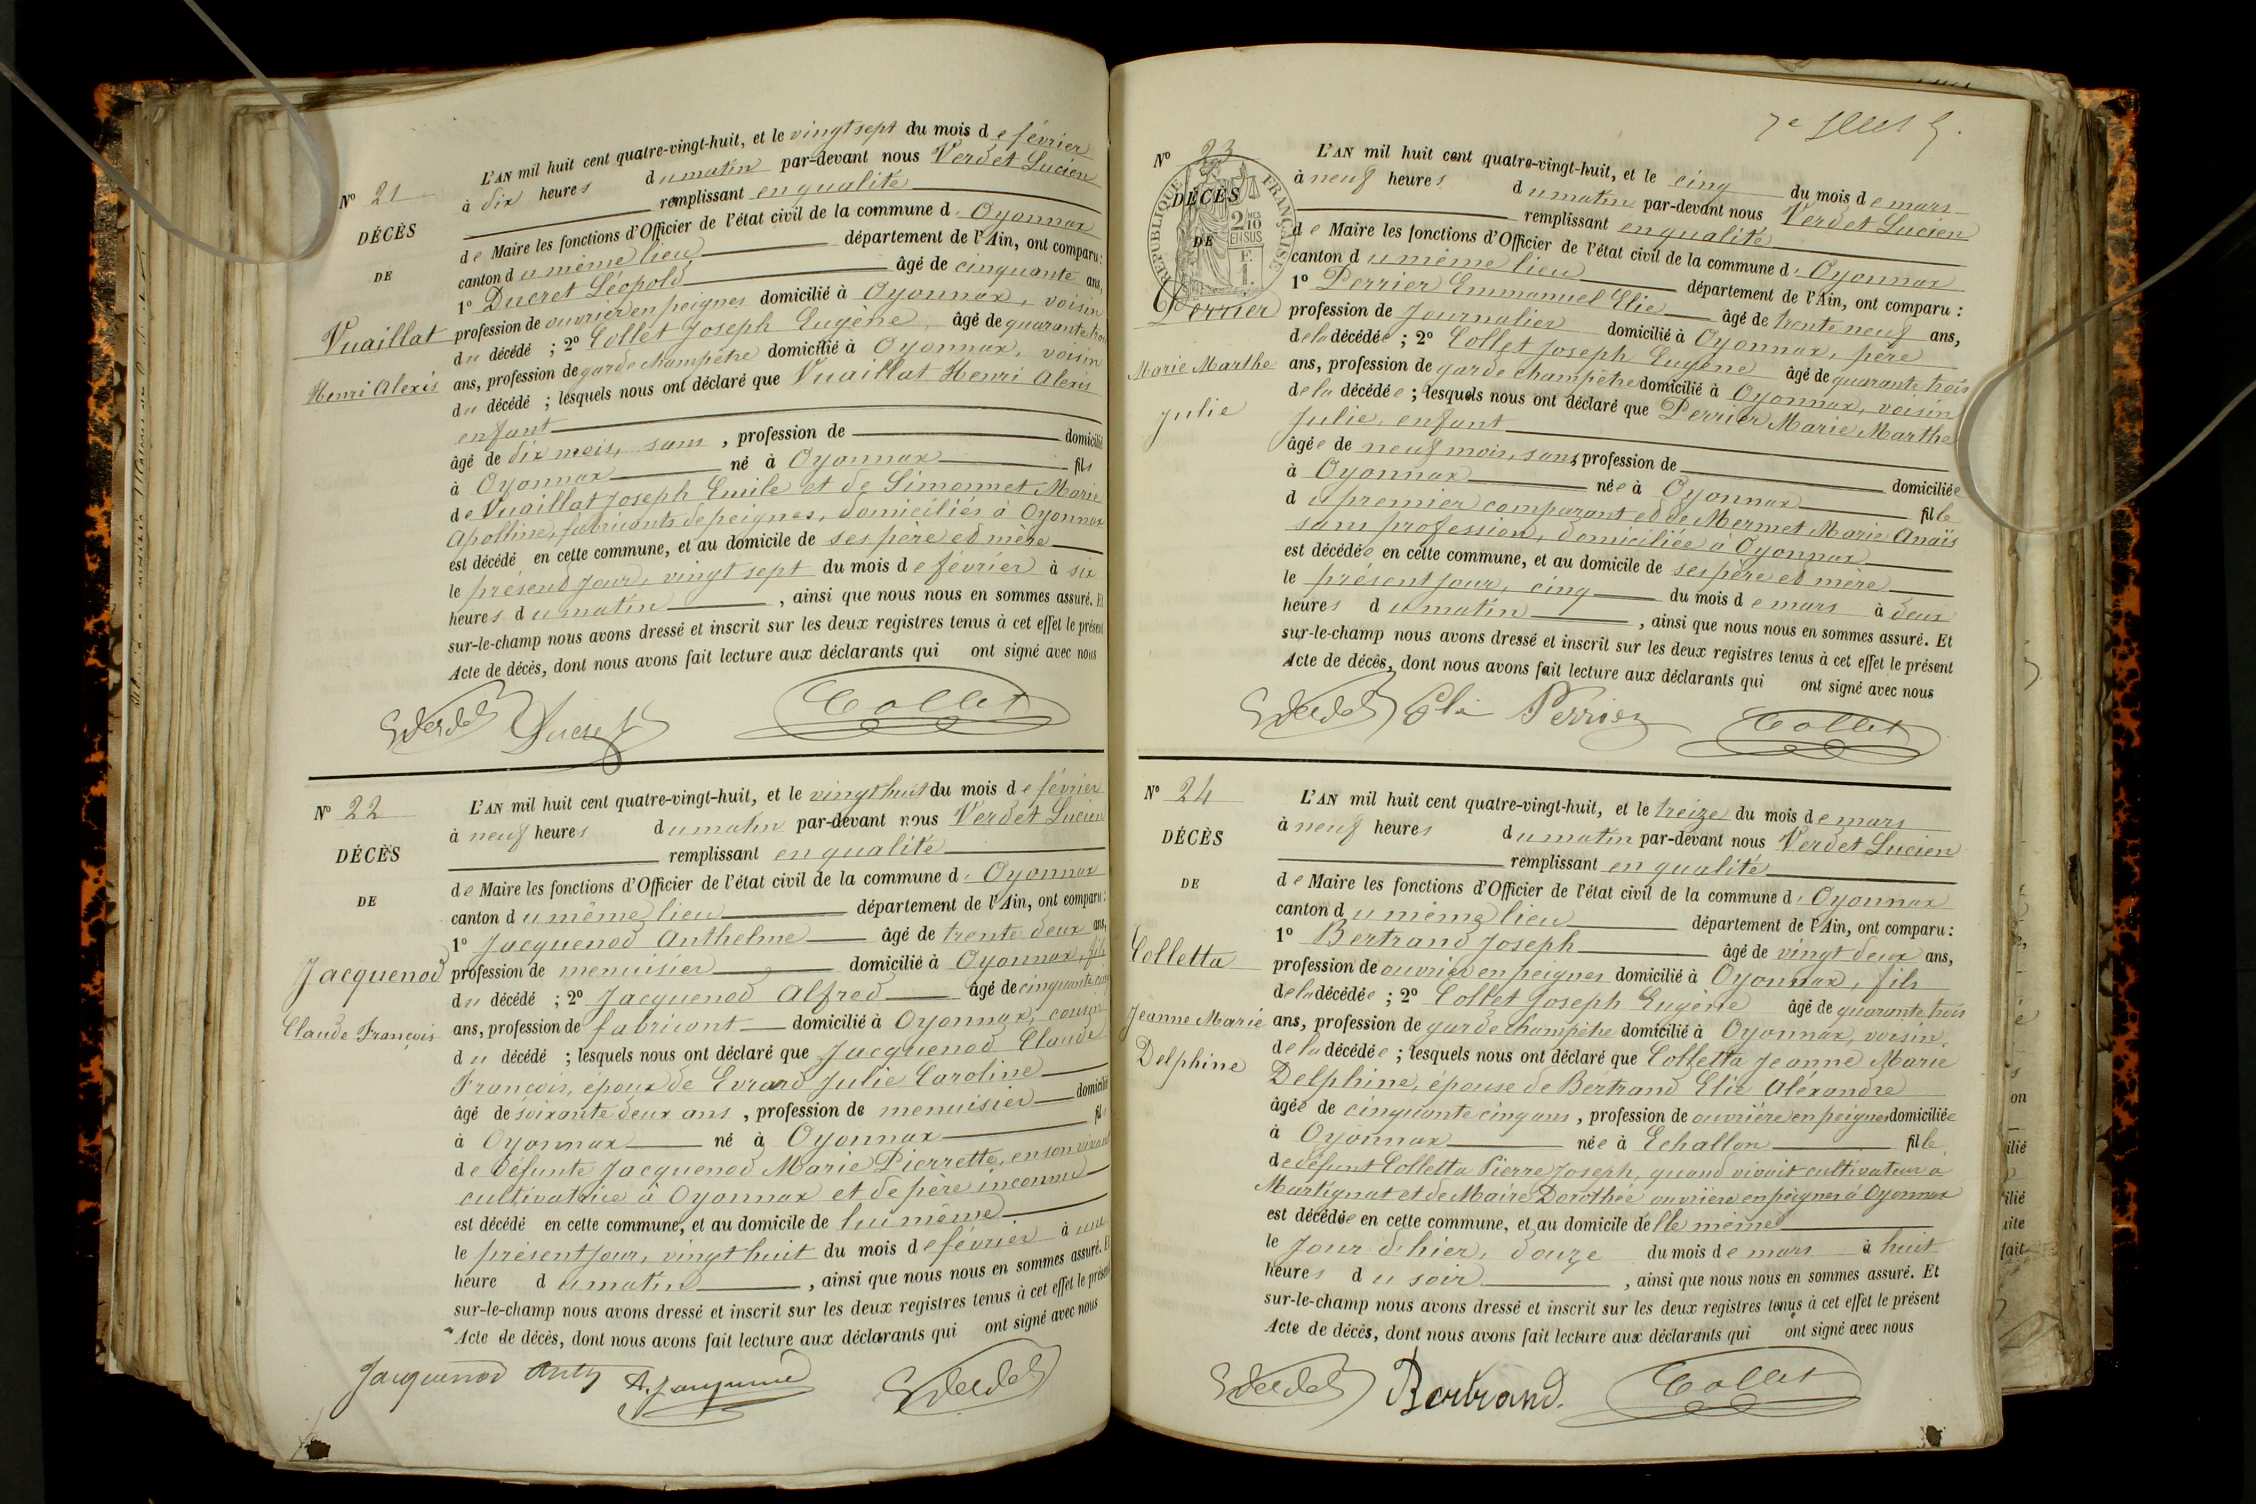 N° 21
DÉCÈS
DE
Vuaillat
Henri Alexis
L'AN mil huit cent quatre-vingt-huit, et le vingt sept du mois de février
à dix heures du matin par-devant nous Verdet Lucien
remplissant en qualité
de Maire les fonctions d'Officier de l'état civil de la commune d'Oyonnax
canton du même lieu département de l'Ain, ont comparu :
1° Ducret Léopold âgé de cinquante ans,
profession de ouvrier en peignes domicilié à Oyonnax, voisin
du décédé ; 2° Collet Joseph Eugène, âgé de quarante trois
ans, profession de garde champêtre domicilié à Oyonnax, voisin
du décédé ; lesquels nous ont déclaré que Vuaillat Henri Alexis
enfant
âgé de dix mois, sans, profession de domicilié
à Oyonnax né à Oyonnax fils
de Vuaillat Joseph Emile et de Simonnet Marie
Apolline, fabricants de peignes, domiciliés à Oyonnax
est décédé en cette commune, et au domicile de ses père et mère
le présent jour, vingt sept du mois de février à six
heures du matin, ainsi que nous nous en sommes assuré. Et
sur-le-champ nous avons dressé et inscrit sur les deux registres tenus à cet effet le présent
Acte de décès, dont nous avons fait lecture aux déclarants qui ont signé avec nous
Verdet Ducret Collet
N° 22
DÉCÈS
DE
Jacquenod
Claude François
L'AN mil huit cent quatre-vingt-huit, et le vingt huit du mois de février
à neuf heures du matin par-devant nous Verdet Lucien
remplissant en qualité
de Maire les fonctions d'Officier de l'état civil de la commune d'Oyonnax
canton du même lieu département de l'Ain, ont comparu :
1° Jacquenod Anthelme âgé de trente deux ans,
profession de menuisier domicilié à Oyonnax, fils
du décédé ; 2° Jacquenod Alfred âgé de cinquante cinq
ans, profession de fabricant domicilié à Oyonnax, cousin
du décédé ; lesquels nous ont déclaré que Jacquenod Claude
François, époux de Evrard Julie Caroline
âgé de soixante deux ans, profession de menuisier domicilié
à Oyonnax né à Oyonnax fils
de défunte Jacquenod Marie Pierrette, en son vivant
cultivatrice à Oyonnax et de père inconnu
est décédé en cette commune, et au domicile de lui même
le présent jour, vingt huit du mois de février à une
heure du matin, ainsi que nous nous en sommes assuré. Et
sur-le-champ nous avons dressé et inscrit sur les deux registres tenus à cet effet le présent
Acte de décès, dont nous avons fait lecture aux déclarants qui ont signé avec nous
Jacquenod Anth A. Jacquenod Verdet
N° 23
DÉCÈS
DE
RÉPUBLIQUE FRANÇAISE
2/10 EN SUS
F. 1.
Perrier
Marie Marthe
Julie
L'AN mil huit cent quatre-vingt-huit, et le cinq du mois de mars
à neuf heures du matin par-devant nous Verdet Lucien
remplissant en qualité
de Maire les fonctions d'Officier de l'état civil de la commune d'Oyonnax
canton du même lieu département de l'Ain, ont comparu :
1° Perrier Emmanuel Elie âgé de trente neuf ans,
profession de journalier domicilié à Oyonnax, père
de la décédée ; 2° Collet Joseph Eugène âgé de quarante trois
ans, profession de garde champêtre domicilié à Oyonnax, voisin
de la décédée ; lesquels nous ont déclaré que Perrier Marie Marthe
Julie, enfant
âgée de neuf mois, sans, profession de domiciliée
à Oyonnax née à Oyonnax fille
du premier comparant et de Mermet Marie Anaïs
sans profession, domiciliée à Oyonnax
est décédée en cette commune, et au domicile de ses père et mère
le présent jour, cinq du mois de mars à deux
heures du matin, ainsi que nous nous en sommes assuré. Et
sur-le-champ nous avons dressé et inscrit sur les deux registres tenus à cet effet le présent
Acte de décès, dont nous avons fait lecture aux déclarants qui ont signé avec nous
Verdet Elie Perrier Collet
N° 24
DÉCÈS
DE
Colletta
Jeanne Marie
Delphine
L'AN mil huit cent quatre-vingt-huit, et le treize du mois de mars
à neuf heures du matin par-devant nous Verdet Lucien
remplissant en qualité
de Maire les fonctions d'Officier de l'état civil de la commune d'Oyonnax
canton du même lieu département de l'Ain, ont comparu :
1° Bertrand Joseph âgé de vingt deux ans,
profession de ouvrier en peignes domicilié à Oyonnax, fils
de la décédée ; 2° Collet Joseph Eugène âgé de quarante trois
ans, profession de garde champêtre domicilié à Oyonnax, voisin
de la décédée ; lesquels nous ont déclaré que Colletta Jeanne Marie
Delphine, épouse de Bertrand Elie Alexandre
âgée de cinquante cinq ans, profession de ouvrière en peignes domiciliée
à Oyonnax née à Echallon fille
de défunt Colletta Pierre Joseph, quand vivait cultivateur à
Martignat et de Maire Dorothée ouvrière en peignes à Oyonnax
est décédée en cette commune, et au domicile d'elle même
le jour d'hier, douze du mois de mars à huit
heures du soir, ainsi que nous nous en sommes assuré. Et
sur-le-champ nous avons dressé et inscrit sur les deux registres tenus à cet effet le présent
Acte de décès, dont nous avons fait lecture aux déclarants qui ont signé avec nous
Verdet Bertrand. Collet